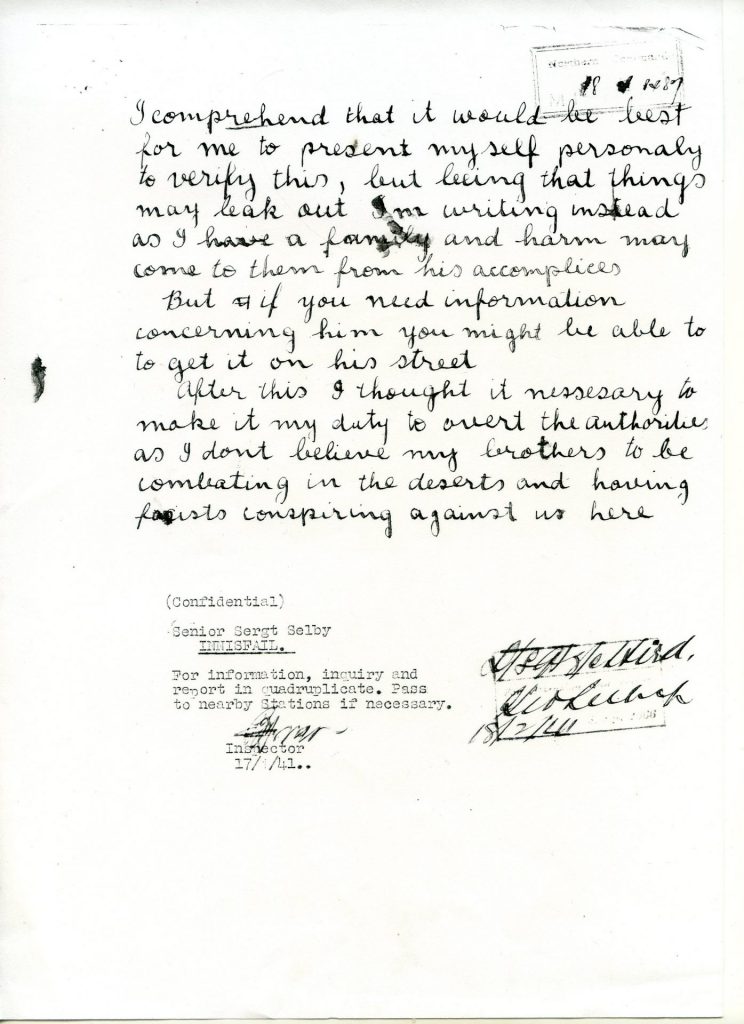 Northern Command
I comprehend that it would be best
for me to present myself personaly
to verify this, but being that things
may leak out I'm writing instead
as I have a family and harm may
come to them from his accomplices
But if you need information
concerning him you might be able to
to get it on his street
After this I thought it nessesary to
make it my duty to overt the authorities
as I dont believe my brothers to be
combating in the deserts and having
facists conspiring against us here
(Confidential)
Senior Sergt Selby
INNISFAIL.
For information, inquiry and
report in quadruplicate. Pass
to nearby Stations if necessary.
Inspector
17/1/41..
18/2/41